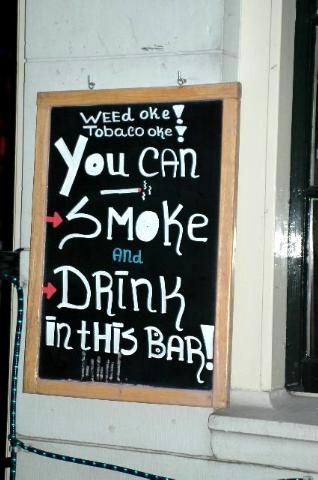 WEED oke!
Tobaco oke!
You CAN
SMOKE
AND
DRINK
in tHiS BAR!